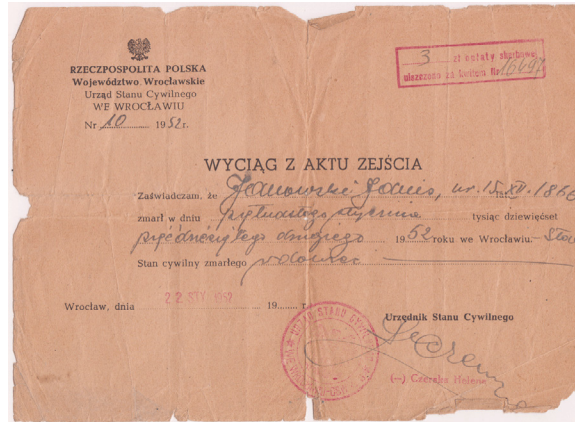 RZECZPOSPOLITA POLSKA
Województwo Wrocławskie
Urząd Stanu Cywilnego
WE WROCŁAWIU
Nr 10 1952 r.
3 zł opłaty skarbowej
uiszczono za kwitem Nr 16497
WYCIĄG Z AKTU ZEJŚCIA
Zaświadczam, że Janowski, ur. 15.XII.186
zmarł w dniu piętnastego stycznia tysiąc dziewięćset
pięćdziesiątego drugiego 1952 roku we Wrocławiu.
Stan cywilny zmarłego wdowiec
Wrocław, dnia 22 STY 1952 19 r.
URZĄD STANU CYWIL
Urzędnik Stanu Cywilnego
(—) Czereba Helena